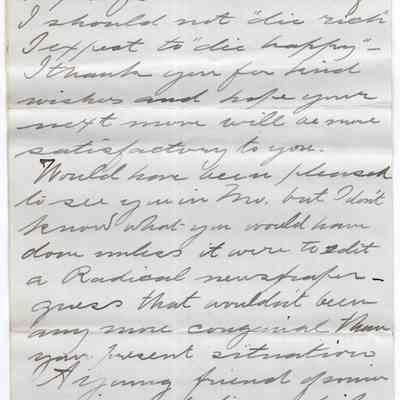 I should not "die rich"
I expect to "die happy" -
I thank you for kind
wishes and hope your
next move will be more
satisfactory to you.
Would have been pleased
to see you in Mo. but I don't
know what you would have
done unless it were to edit
a Radical newspaper -
guess that wouldn't been
any more congenial than
your present situation
A young friend of mine